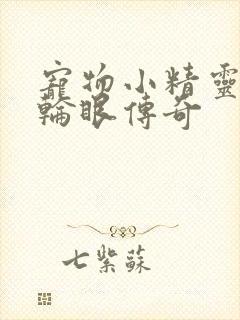 寵物小精靈
輪眼傳奇
七紫蘇